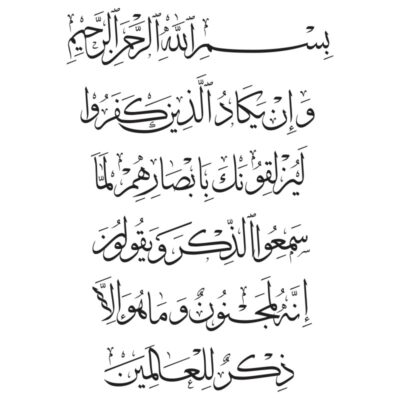 بِسْمِ ٱللَّهِ ٱلرَّحْمَٰنِ ٱلرَّحِيمِ
وَإِن يَكَادُ ٱلَّذِينَ كَفَرُوا
لَيُزْلِقُونَكَ بِأَبْصَارِهِمْ لَمَّا
سَمِعُوا ٱلذِّكْرَ وَيَقُولُونَ
إِنَّهُ لَمَجْنُونٌ وَمَا هُوَ إِلَّا
ذِكْرٌ لِلْعَالَمِينَ